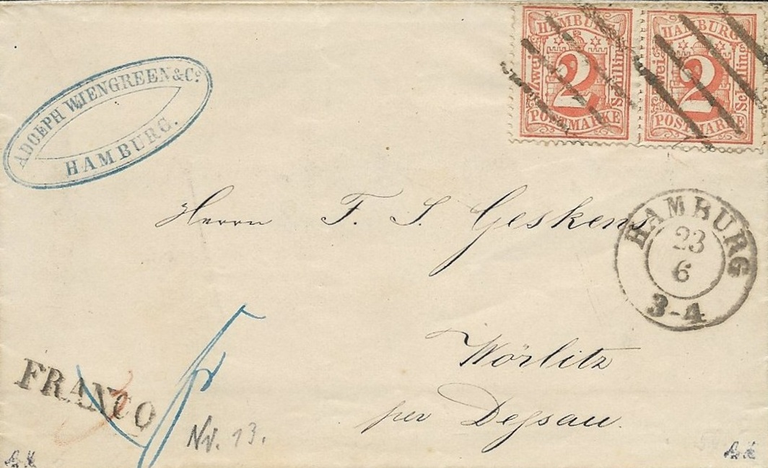 HAMBURG
Zwei
2
Schilling
POSTMARKE
HAMBURG
Zwei
2
Schilling
POSTMARKE
ADOLPH WIENGREEN & Co
HAMBURG.
Herrn F. S. Geskens
HAMBURG
23
6
3-4
Wörlitz
per Dessau.
FRANCO
Nr. 13.